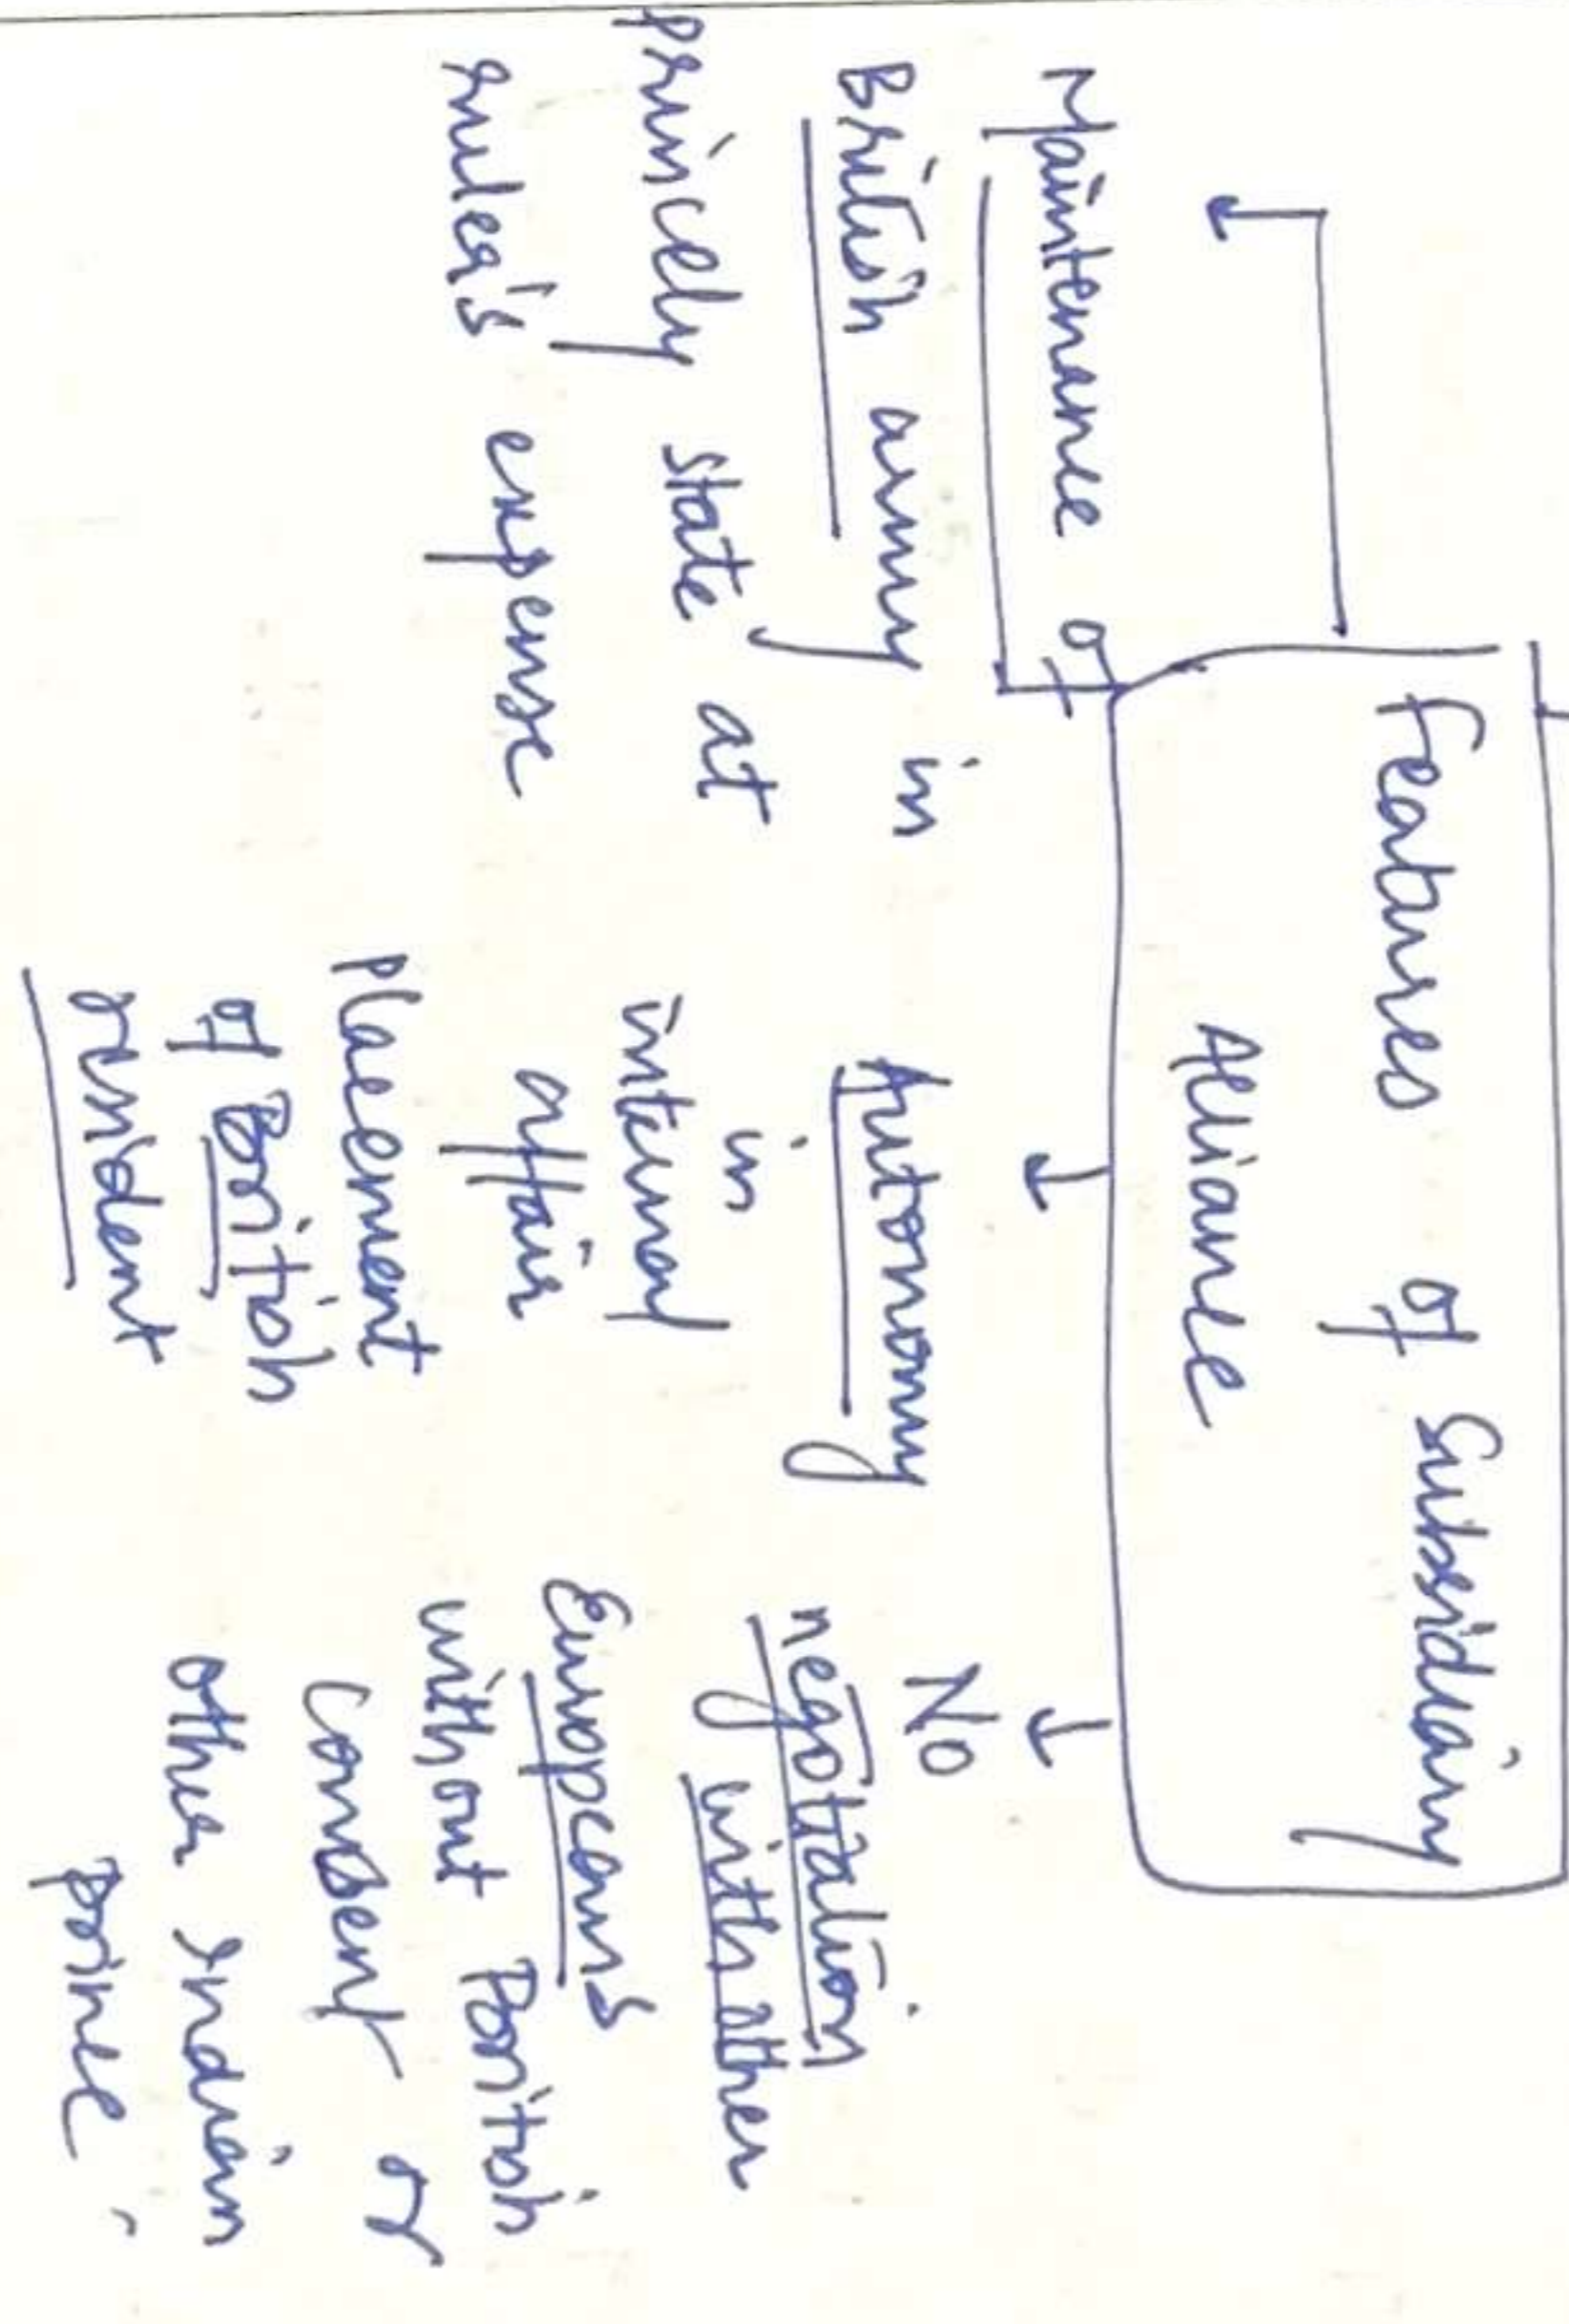 Features of Subsidiary
Alliance
Maintenance of
British army in
princely state at
ruler's expense
Autonomy
in
internal
affair
Placement
of British
resident
No
negotiation
with other
Europeans
without British
consent or
other Indian
prince.